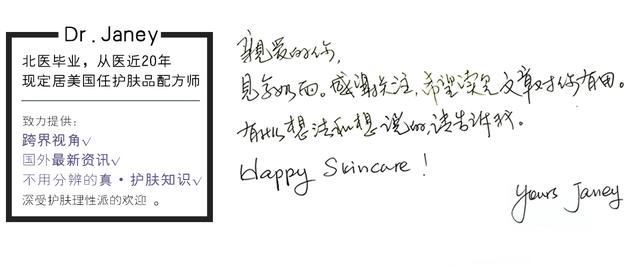 Dr. Janey
北医毕业，从医近20年
现定居美国任护肤品配方师
致力提供：
跨界视角✓
国外最新资讯✓
不用分辨的真·护肤知识✓
深受护肤理性派的欢迎 。
親爱的你，
见字如面。感谢关注，希望读完文章对你有用。
有什么想法和想说的，请告诉我。
Happy Skincare !
Yours Janey